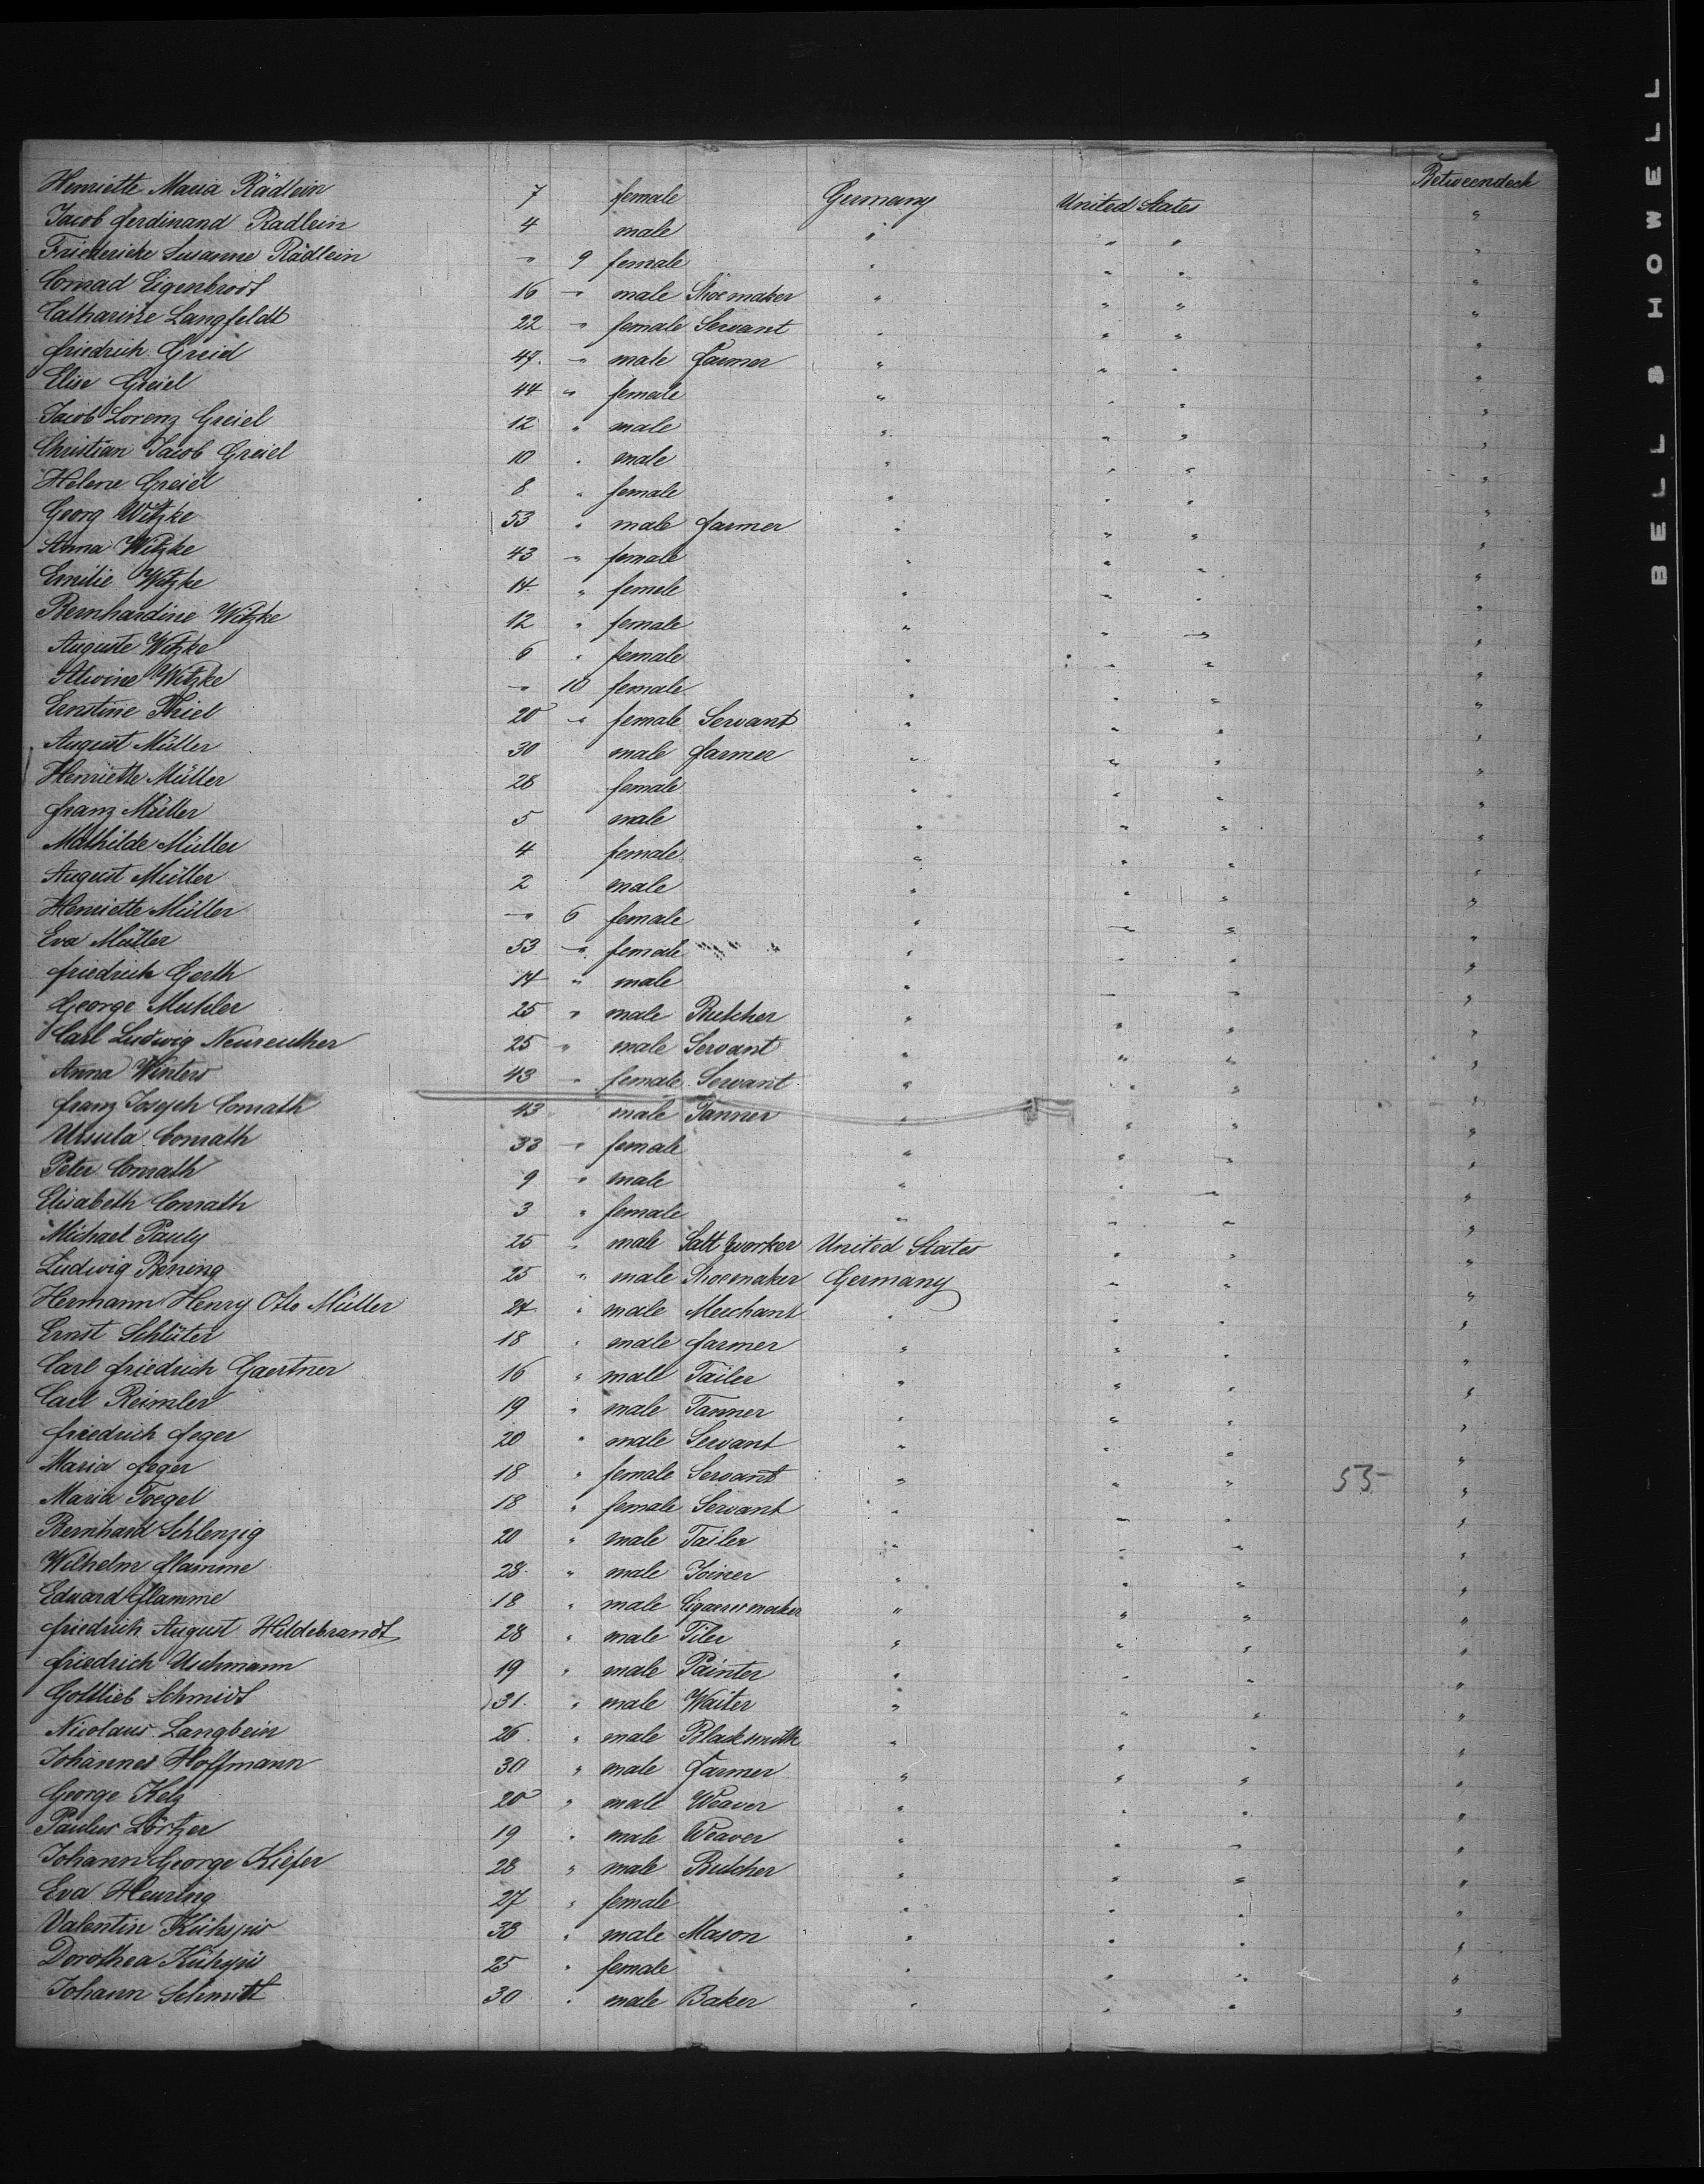 Betweendeck
Henriette Maria Rädlein 7 female Germany United States "
Jacob Ferdinand Radlein 4 male " " " "
Friedericke Susanne Rädlein " 9 female " " " "
Conrad Eigenbrodt 16 " male Shoemaker " " " "
Catharine Langfeldt 22 " female Servant " " " "
Friedrich Greiel 47. " male Farmer " " " "
Elise Greiel 44 " female " " " "
Jacob Lorenz Greiel 12 " male " " " "
Christian Jacob Greiel 10 " male " " " "
Helene Greiel 8 " female " " " "
Georg Witzke 53 " male farmer " " " "
Anna Witzke 43 " female " " " "
Emilie Witzke 14. " female " " " "
Bernhardine Witzke 12 " female " " " "
Auguste Witzke 6 " female " " " "
Alwine Witzke " 10 female " " " "
Ernstine Thiel 20 " female Servant " " " "
August Müller 30 male farmer " " " "
Henriette Müller 28 female " " " "
Franz Müller 5 male " " " "
Mathilde Müller 4 female " " " "
August Müller 2 male " " " "
Henriette Müller " 6 female " " " "
Eva Müller 53 " female " " " "
Friedrich Gerth 14 " male " " " "
George Muhler 25 " male Butcher " " " "
Carl Ludwig Neureuther 25 " male Servant " " " "
Anna Winters 43 " female Servant " " " "
Franz Joseph Conrath 43 male Tanner " " " "
Ursula Conrath 33 " female " " " "
Peter Conrath 9 " male " " " "
Elisabeth Conrath 3 " female " " " "
Michael Pauly 25 " male Salt worker United States " " "
Ludwig Bening 25 " male Shoemaker Germany " " "
Hermann Henry Otto Müller 24. " male Merchant " " " "
Ernst Schlüter 18 " male farmer " " " "
Carl Friedrich Gaertner 16 " male Tailer " " " "
Carl Reimler 19 " male Tanner " " " "
Friedrich Feger 20 " male Servant " " " "
Maria Feger 18 " female Servant " " " 53- "
Maria Toegel 18 " female Servant " " " "
Bernhard Schlenzig 20 " male Tailer " " " "
Wilhelm Flamme 28. " male Joiner " " " "
Eduard Flamme 18 " male Cigarrmaker " " " "
Friedrich August Hildebrandt 28 " male Tiler " " " "
Friedrich Uschmann 19 " male Painter " " " "
Gottlieb Schmidt 31. " male Waiter " " " "
Nicolaus Langbein 26. " male Blacksmith " " " "
Johannes Hoffmann 30 " male Farmer " " " "
George Kelz 20 " male Weaver " " " "
Paulus Lörtzer 19 " male Weaver " " " "
Johann George Kiefer 28 " male Butcher " " " "
Eva Heuring 27 " female " " " "
Valentin 38 " male Mason " " " "
Dorothea 25 " female " " " "
Johann Schmitt 30 " male Baker " " " "
BELL & HOWELL